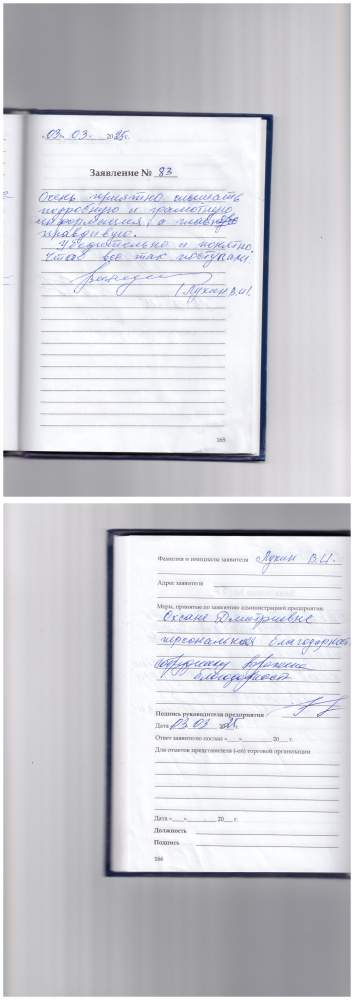 «03» 03. 2025г.
Заявление № 83
Очень приятно слышать
подробную и грамотную
информацию, а главное
правдивую.
Убедительно и понятно.
Чтоб все так поступали.
/Лукин В.И/.
165
Фамилия и инициалы заявителя Лукин В.И.
Адрес заявителя
Меры, принятые по заявлению администрацией предприятия:
Оксане Дмитриевне
персональная благодарность
сотруднику
благодарность
Подпись руководителя предприятия
Дата 03 03 2025.
Ответ заявителю послан «___» ________ 20___ г.
Для отметок представителя (-ей) торговой организации
Дата «___» ________ 20___ г.
Должность
Подпись
166